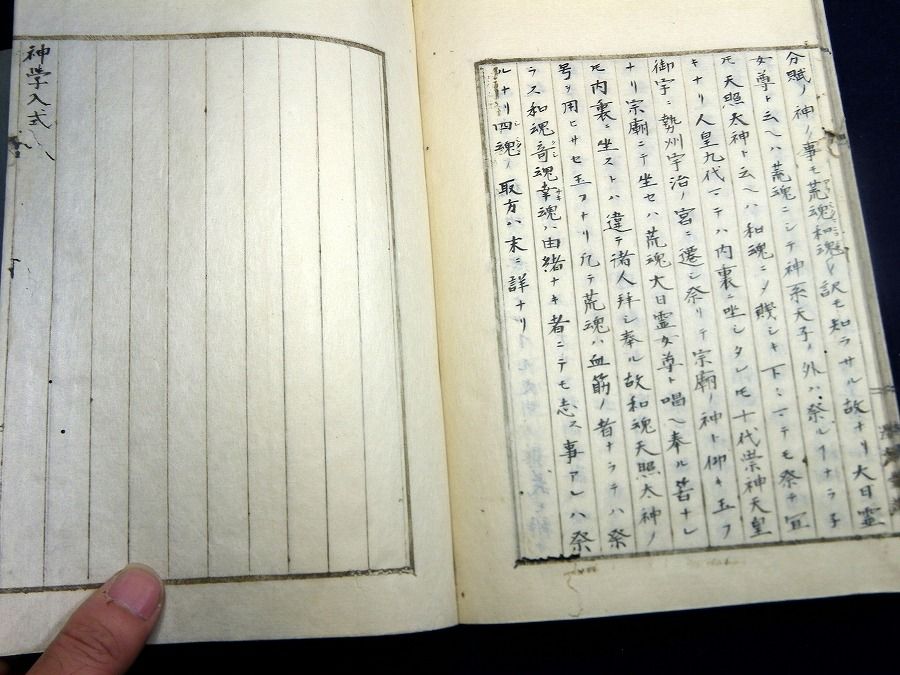 分賦ノ神ノ事モ荒魂和魂ノ訳モ知ラサル故ナリ大日霊
女尊ト云ヘハ荒魂ニシテ神系天子ノ外ハ祭レナラ子
𪜈天照大神ト云ヘハ和魂ニ〆賤シキ下ニマテモ祭テ宜
キナリ人皇九代マテハ内裏ニ坐シタレ𪜈十代崇神天皇
御宇ニ勢州宇治ノ宮ニ遷シ祭リテ宗廟ノ神ト仰キ玉フ
ナリ宗廟ニテ坐セハ荒魂大日霊女尊ト唱ヘ奉ル筈ナレ
𪜈内裏ニ坐ストハ違テ諸人拜シ奉ル故和魂天照大神ノ
号ヲ用ヒサセ玉フナリ凡テ荒魂ハ血筋ノ者ナラテハ祭
ラス和魂奇魂幸魂ハ由緒ナキ者ニテモ志ス事アレハ祭
ルナリ四魂ノ取方ハ末ニ詳ナリ
神学入式